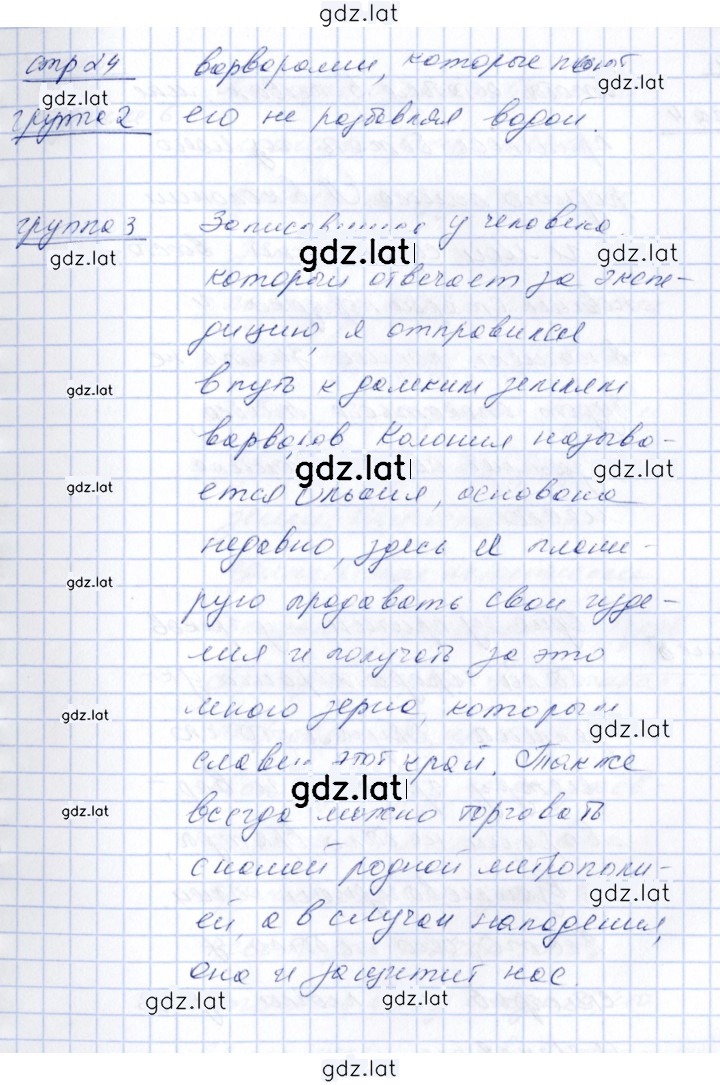 gdz.lat
стр 24 варварами, которые пьют
gdz.lat
группа 2 его не разбавляя водой.
группа 3 Записавшись у человека,
gdz.lat gdz.lat gdz.lat
который отвечает за экспе-
дицию, я отправился
gdz.lat
в путь к далеким землям
варваров. Колония называ-
gdz.lat gdz.lat
gdz.lat
ется Ольвия, основана
недавно, здесь я плани-
gdz.lat
рую продавать свои изде-
лия и получать за это
gdz.lat
много зерна, которым
gdz.lat
славен этот край. Также
gdz.lat
gdz.lat
всегда можно торговать
с нашей родной метрополи-
gdz.lat
ей, а в случаи нападения,
она и защитит нас.
gdz.lat gdz.lat
gdz.lat